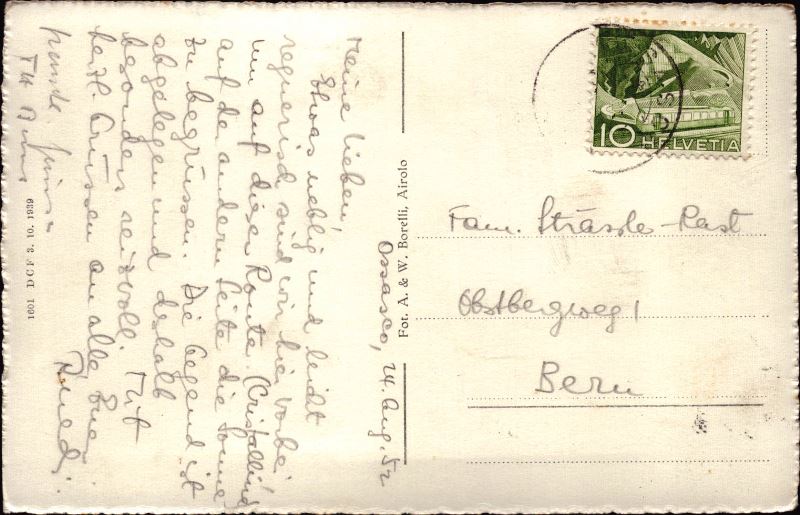 Ossasco, 24. Aug. 52
Meine Lieben!
Etwas neblig und leicht
regnerisch sind wir hier vorbei
um auf dieser Route (Cristallina)
auf der andern Seite die Sonne
zu begrüssen. Die Gegend ist
abgelegen und deshalb
besonders reizvoll. Mit
herzl. Grüssen an alle Euer
Ruedi
Fot. A. & W. Borelli, Airolo
1601 DCF 3. 10. 1939
10 HELVETIA
Fam. Strässle-Rast
Obstbergweg 1
Bern